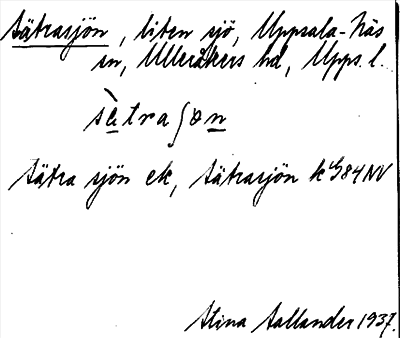 Sätrasjön, liten sjö, Uppsala-Näs
sn, Ulleråkers hd, Upps. l.
sètraʃøn
Sätra sjön ek, Sätrasjön k
Stina Sallander 1937.